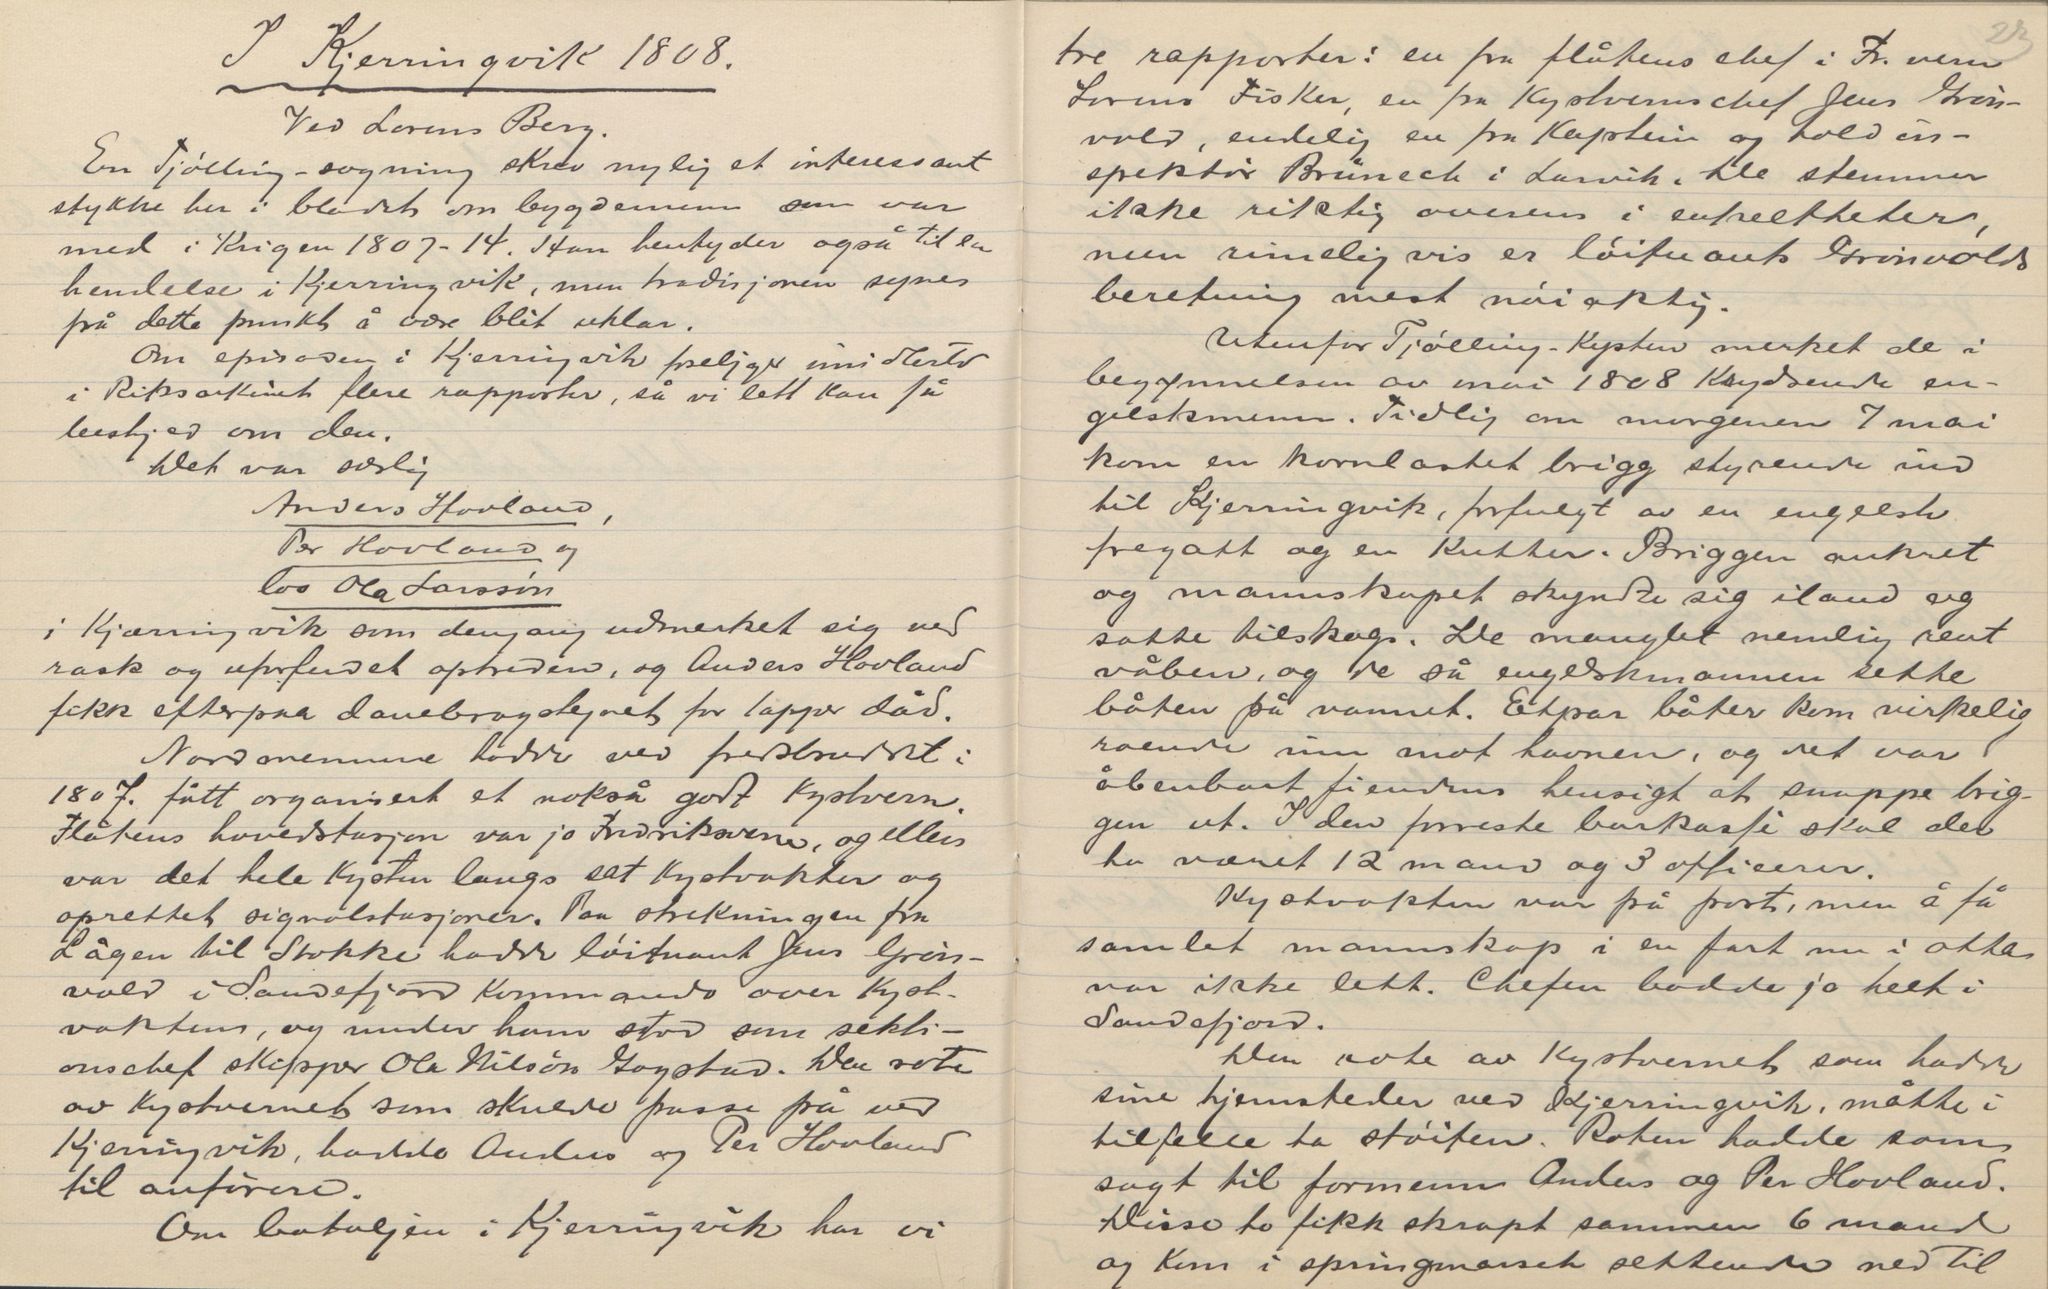 I Kjerringvik 1808.
Ved Lorens Berg.
En Tjølling-sogning skrev nylig et interessant
stykke her i bladet om bygdemenn som var
med i Krigen 1807-14. Han hentyder også til en
hendelse i Kjerringvik, men tradisjonen synes
på dette punkt å være blit uklar.
Om episoden i Kjerringvik foreligger imidlertid
i Riksarkivet flere rapporter, så vi lett kan få
beskjed om den.
Det var særlig
Anders Hovland,
Per Hovland og
los Ola Larssön
i Kjærringvik som dengang udmerket sig ved
rask og uforferdet optreden, og Anders Hovland
fikk efterpaa danebrogstegnet for tapper dåd.
Nordmennene hadde ved fredsbruddet i
1807. fått organisert et nokså godt Kystvern.
Flåtens hovedstasjon var jo Fredriksvern, og ellers
var det hele Kysten langs sat Kystvakter og
oprettet signalstasjoner. Paa strekningen fra
Lågen til Stokke hadde löitnant Jens Grön-
vold i Sandefjord Kommando over Kyst-
vaktens, og under ham stod som sekti-
onschef skipper Ola Nilsön Gogstad. Den rote
av Kystvernet som skulde passe på ved
Kjerringvik, hadde Anders og Per Hovland
til anförere.
Om bataljen i Kjerringvik har vi
23
tre rapporter: en fra flåtens chef i Fr. vern
Lorens Fisker, en fra Kystvernschef Jens Grön-
vold, endelig en fra Kaptein og told in-
spektör Brünech i Larvik. De stemmer
ikke riktig overens i enkeltheter,
men rimeligvis er löitnant Grönvolds
beretning mest nöiaktig.
Utenfor Tjølling-Kysten merket de i
begynnelsen av mai 1808 Krydsende en-
gelskmenn. Tidlig om morgenen 7 mai
kom en kornlastet brigg styrende ind
til Kjerringvik, forfulgt av en engelsk
fregatt og en Kutter. Briggen ankret
og mannskapet skyndte sig iland og
satte tilskogs. De manglet nemlig rent
våben, og de så engelskmannen sette
båten på vannet. Etpar båter kom virkelig
roende inn mot havnen, og det var
åbenbart fiendens hensigt at snappe brig-
gen ut. I den forreste barkasse skal der
ha været 12 mand og 3 officerer.
Kystvakten var på post, men å få
samlet mannskap i en fart nu i otta
var ikke lett. Chefen bodde jo helt i
Sandefjord.
Den rote av Kystvernet som hadde
sine hjemsteder ved Kjerringvik, måtte i
tilfelle ta stöiten. Roten hadde som
sagt til formenn Anders og Per Hovland.
Disse to fikk skrapt sammen 6 mand
og kom i springmarsch settende ned til